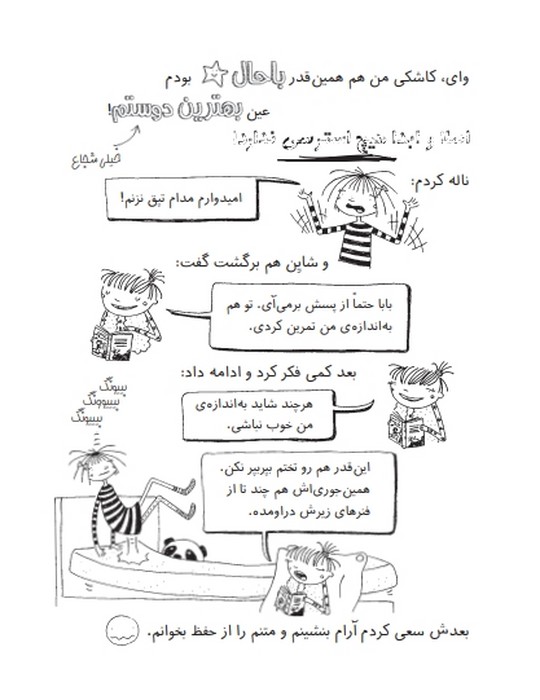 وای، کاشکی من هم همین‌قدر باحال بودم
عین بهترین دوستم!
خیلی شجاع
اصلاً و ابداً هیچ استرسی نداره!
ناله کردم:
امیدوارم مدام تپق نزنم!
و شایِن هم برگشت گفت:
بابا حتماً از پسش برمی‌آی. تو هم
به‌اندازه‌ی من تمرین کردی.
بعد کمی فکر کرد و ادامه داد:
هرچند شاید به‌اندازه‌ی
من خوب نباشی.
بییونگ
بیبیوونگ
بیییونگ
این‌قدر هم رو تختم بپربپر نکن.
همین‌جوری‌اش هم چند تا از
فنرهای زیرش دراومده.
بعدش سعی کردم آرام بنشینم و متنم را از حفظ بخوانم.